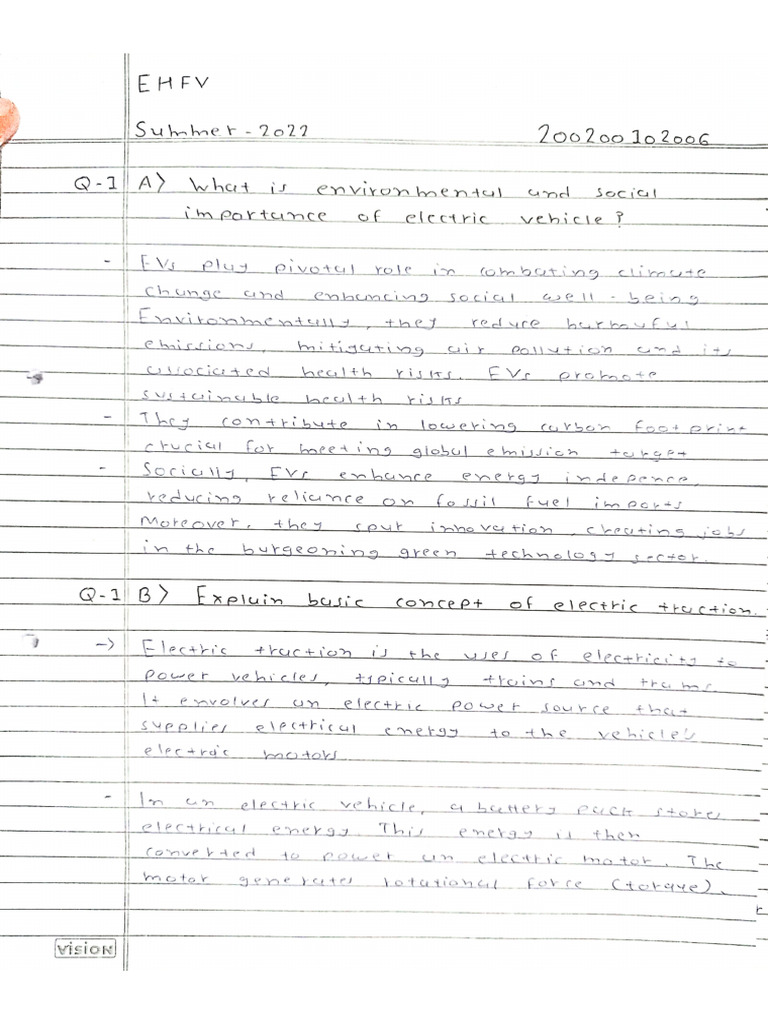 EHFV
Summer - 2022 200200102006
Q-1 A) What is environmental and social
importance of electric vehicle?
- EVs play pivotal role in combating climate
change and enhancing social well-being
Environmentally, they reduce harmuful
emissions, mitigating air pollution and its
associated health risks. EVs promote
sustainable health risks
- They contribute in lowering carbon footprint
crucial for meeting global emission target
- Socially, EVs enhance energy indepence,
reducing reliance on fossil fuel imports
Moreover, they spur innovation, creating jobs
in the burgeoning green technology sector.
Q-1 B) Explain basic concept of electric traction.
-> Electric traction is the uses of electricity to
power vehicles, typically trains and trams.
It envolves an electric power source that
supplies electrical energy to the vehicle's
electric motors
- In an electric vehicle, a battery pack stores
electrical energy. This energy is then
converted to power an electric motor. The
motor generates rotational force (torque).
VISION